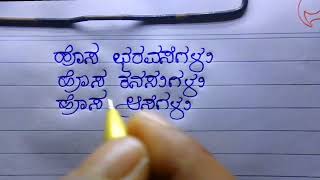 ಹೊಸ ಭರವಸೆಗಳು
ಹೊಸ ಕನಸುಗಳು
ಹೊಸ ಆಸೆಗಳು